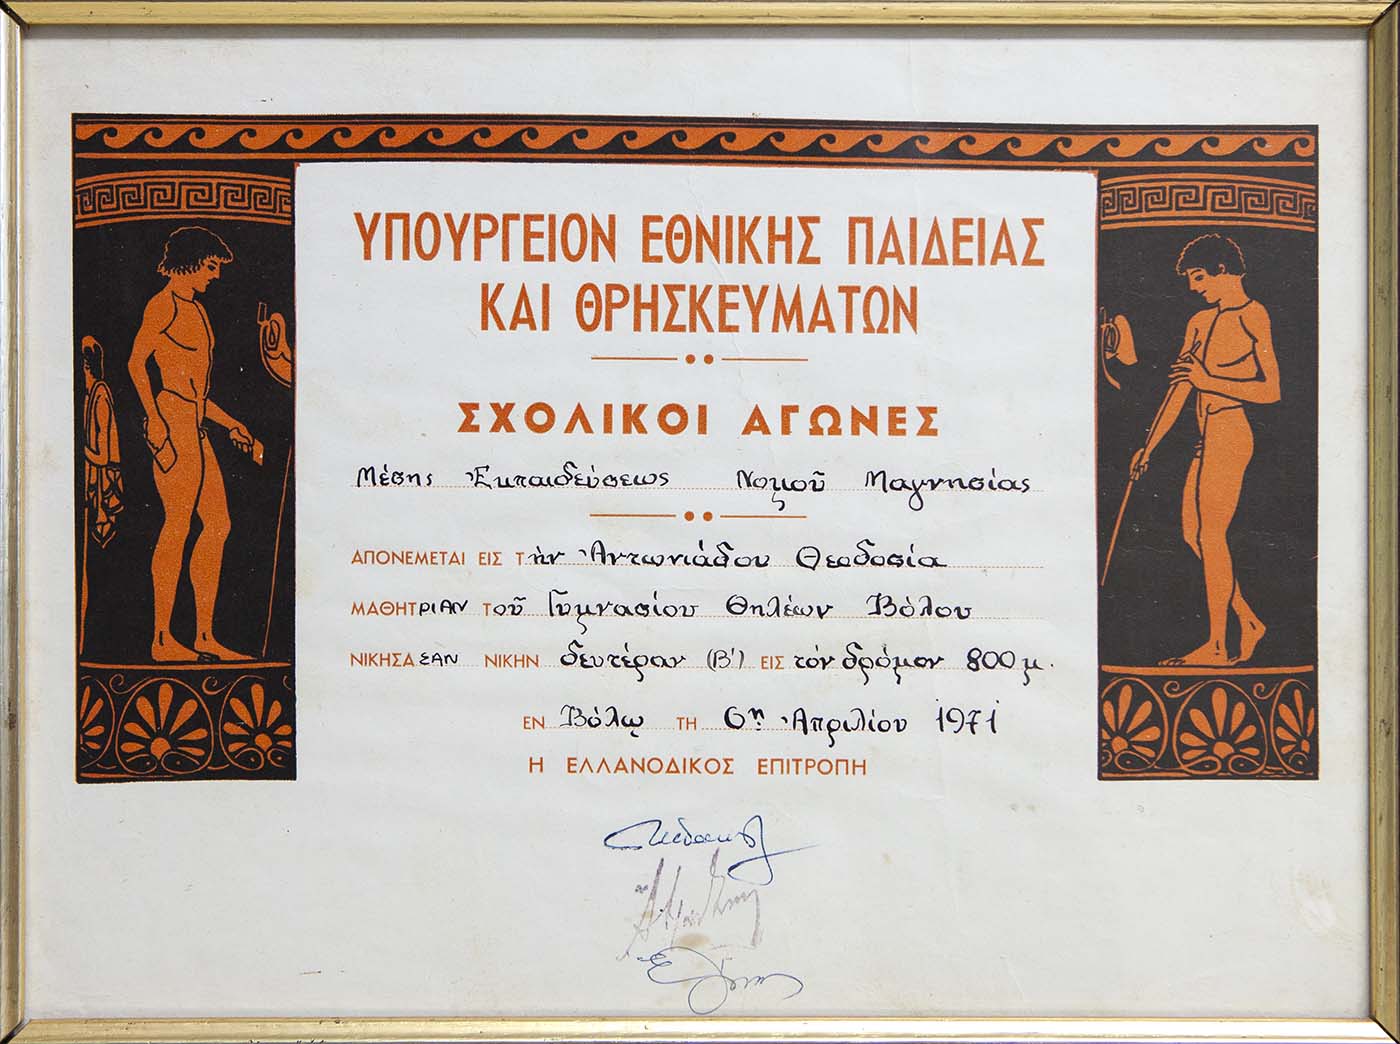 ΥΠΟΥΡΓΕΙΟΝ ΕΘΝΙΚΗΣ ΠΑΙΔΕΙΑΣ
ΚΑΙ ΘΡΗΣΚΕΥΜΑΤΩΝ
ΣΧΟΛΙΚΟΙ ΑΓΩΝΕΣ
Μέσης Ἐκπαιδεύσεως Νομοῦ Μαγνησίας
ΑΠΟΝΕΜΕΤΑΙ ΕΙΣ Τὴν Ἀντωνιάδου Θεοδοσία
ΜΑΘΗΤΡΙΑΝ Τοῦ Γυμνασίου Θηλέων Βόλου
ΝΙΚΗΣΑΣΑΝ ΝΙΚΗΝ δευτέραν (Β') ΕΙΣ τὸν δρόμον 800 μ.
ΕΝ Βόλῳ ΤΗ 6ῃ Ἀπριλίου 1971
Η ΕΛΛΑΝΟΔΙΚΟΣ ΕΠΙΤΡΟΠΗ